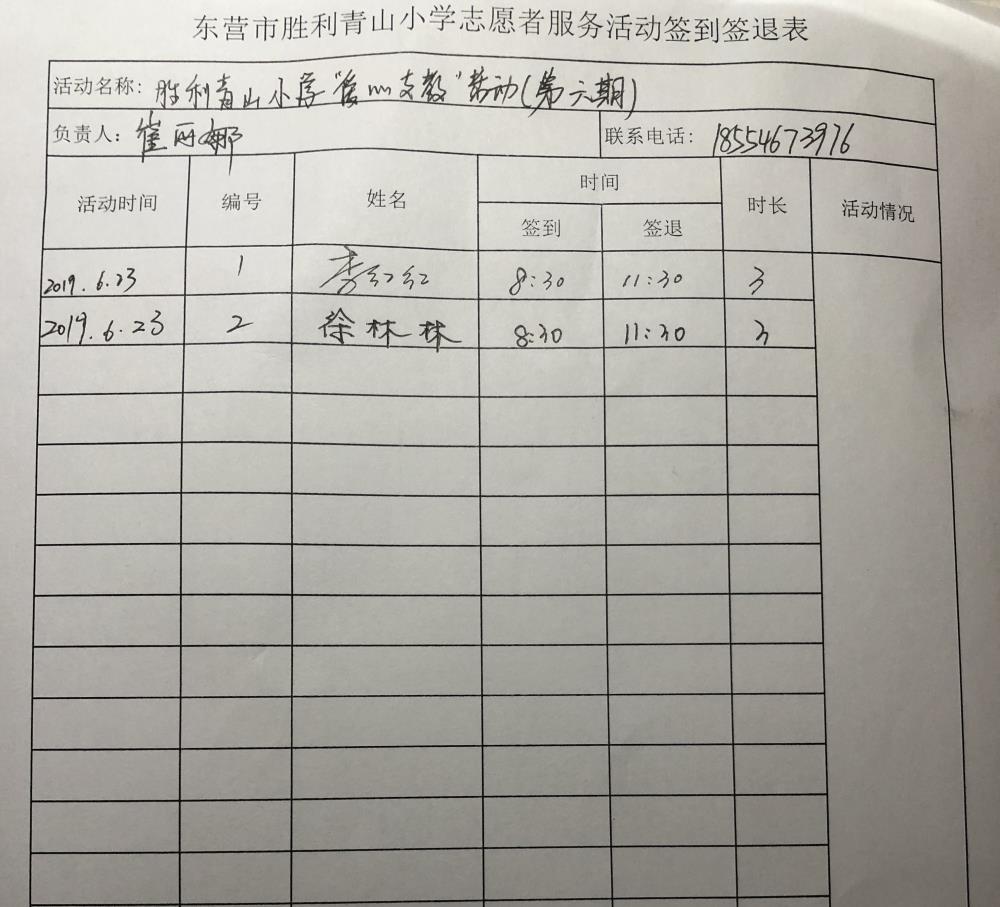 东营市胜利青山小学志愿者服务活动签到签退表
活动名称：胜利青山小学“爱心支教”活动（第六期）
负责人：崔丽娜 联系电话：18554673976
活动时间 编号 姓名 时间 时长 活动情况
签到 签退
2019.6.23 1 李红红 8:30 11:30 3
2019.6.23 2 徐林林 8:30 11:30 3